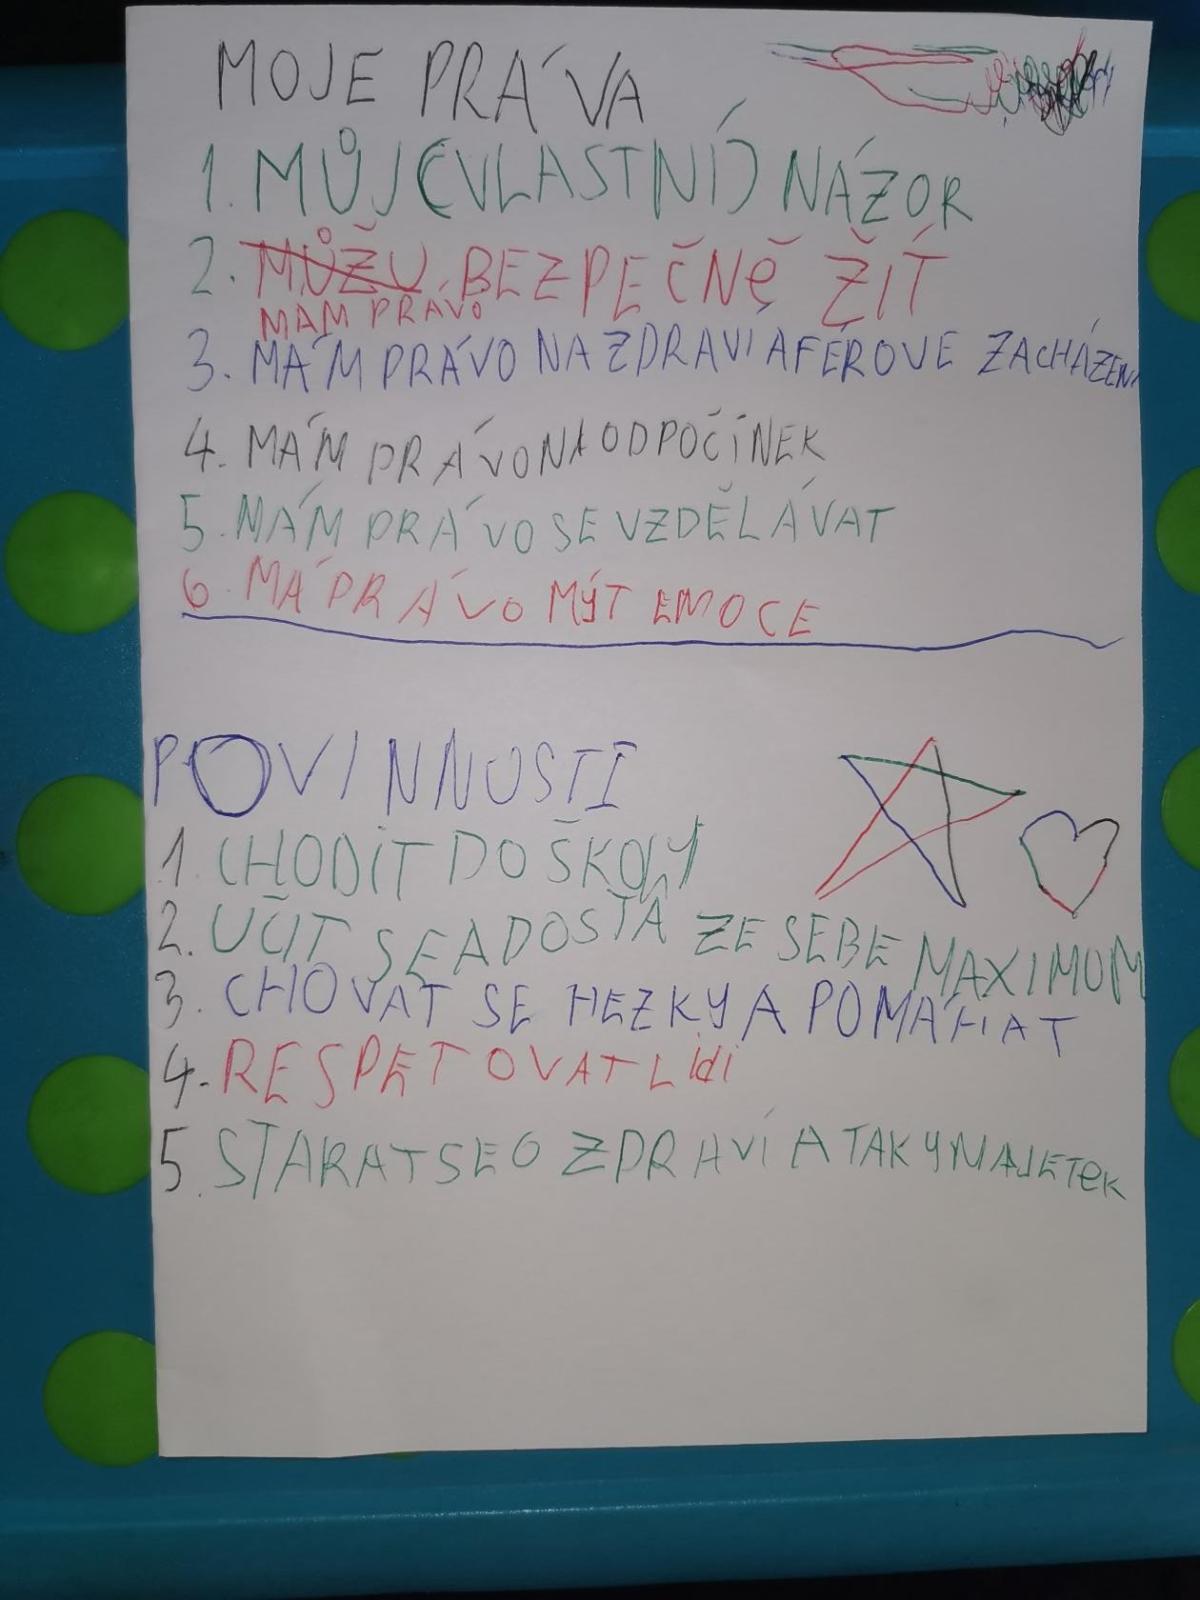 MOJE PRÁVA
1. MŮJ (VLASTNÍ) NÁZOR
2. MŮŽU BEZPEČNĚ ŽÍT
MÁM PRÁVO
3. MÁM PRÁVO NA ZDRAVÍ A FÉROVÉ ZACHÁZENÍ
4. MÁM PRÁVO NA ODPOČÍNEK
5. MÁM PRÁVO SE VZDĚLÁVAT
6. MÁ PRÁVO MÝT EMOCE
POVINNOSTI
1. CHODIT DO ŠKOLY
2. UČIT SE A DOSTA ZE SEBE MAXIMUM
3. CHOVAT SE HEZKY A POMÁHAT
4. RESPETOVAT LIDI
5. STARAT SE O ZDRAVÍ A TAKY MAJETEK